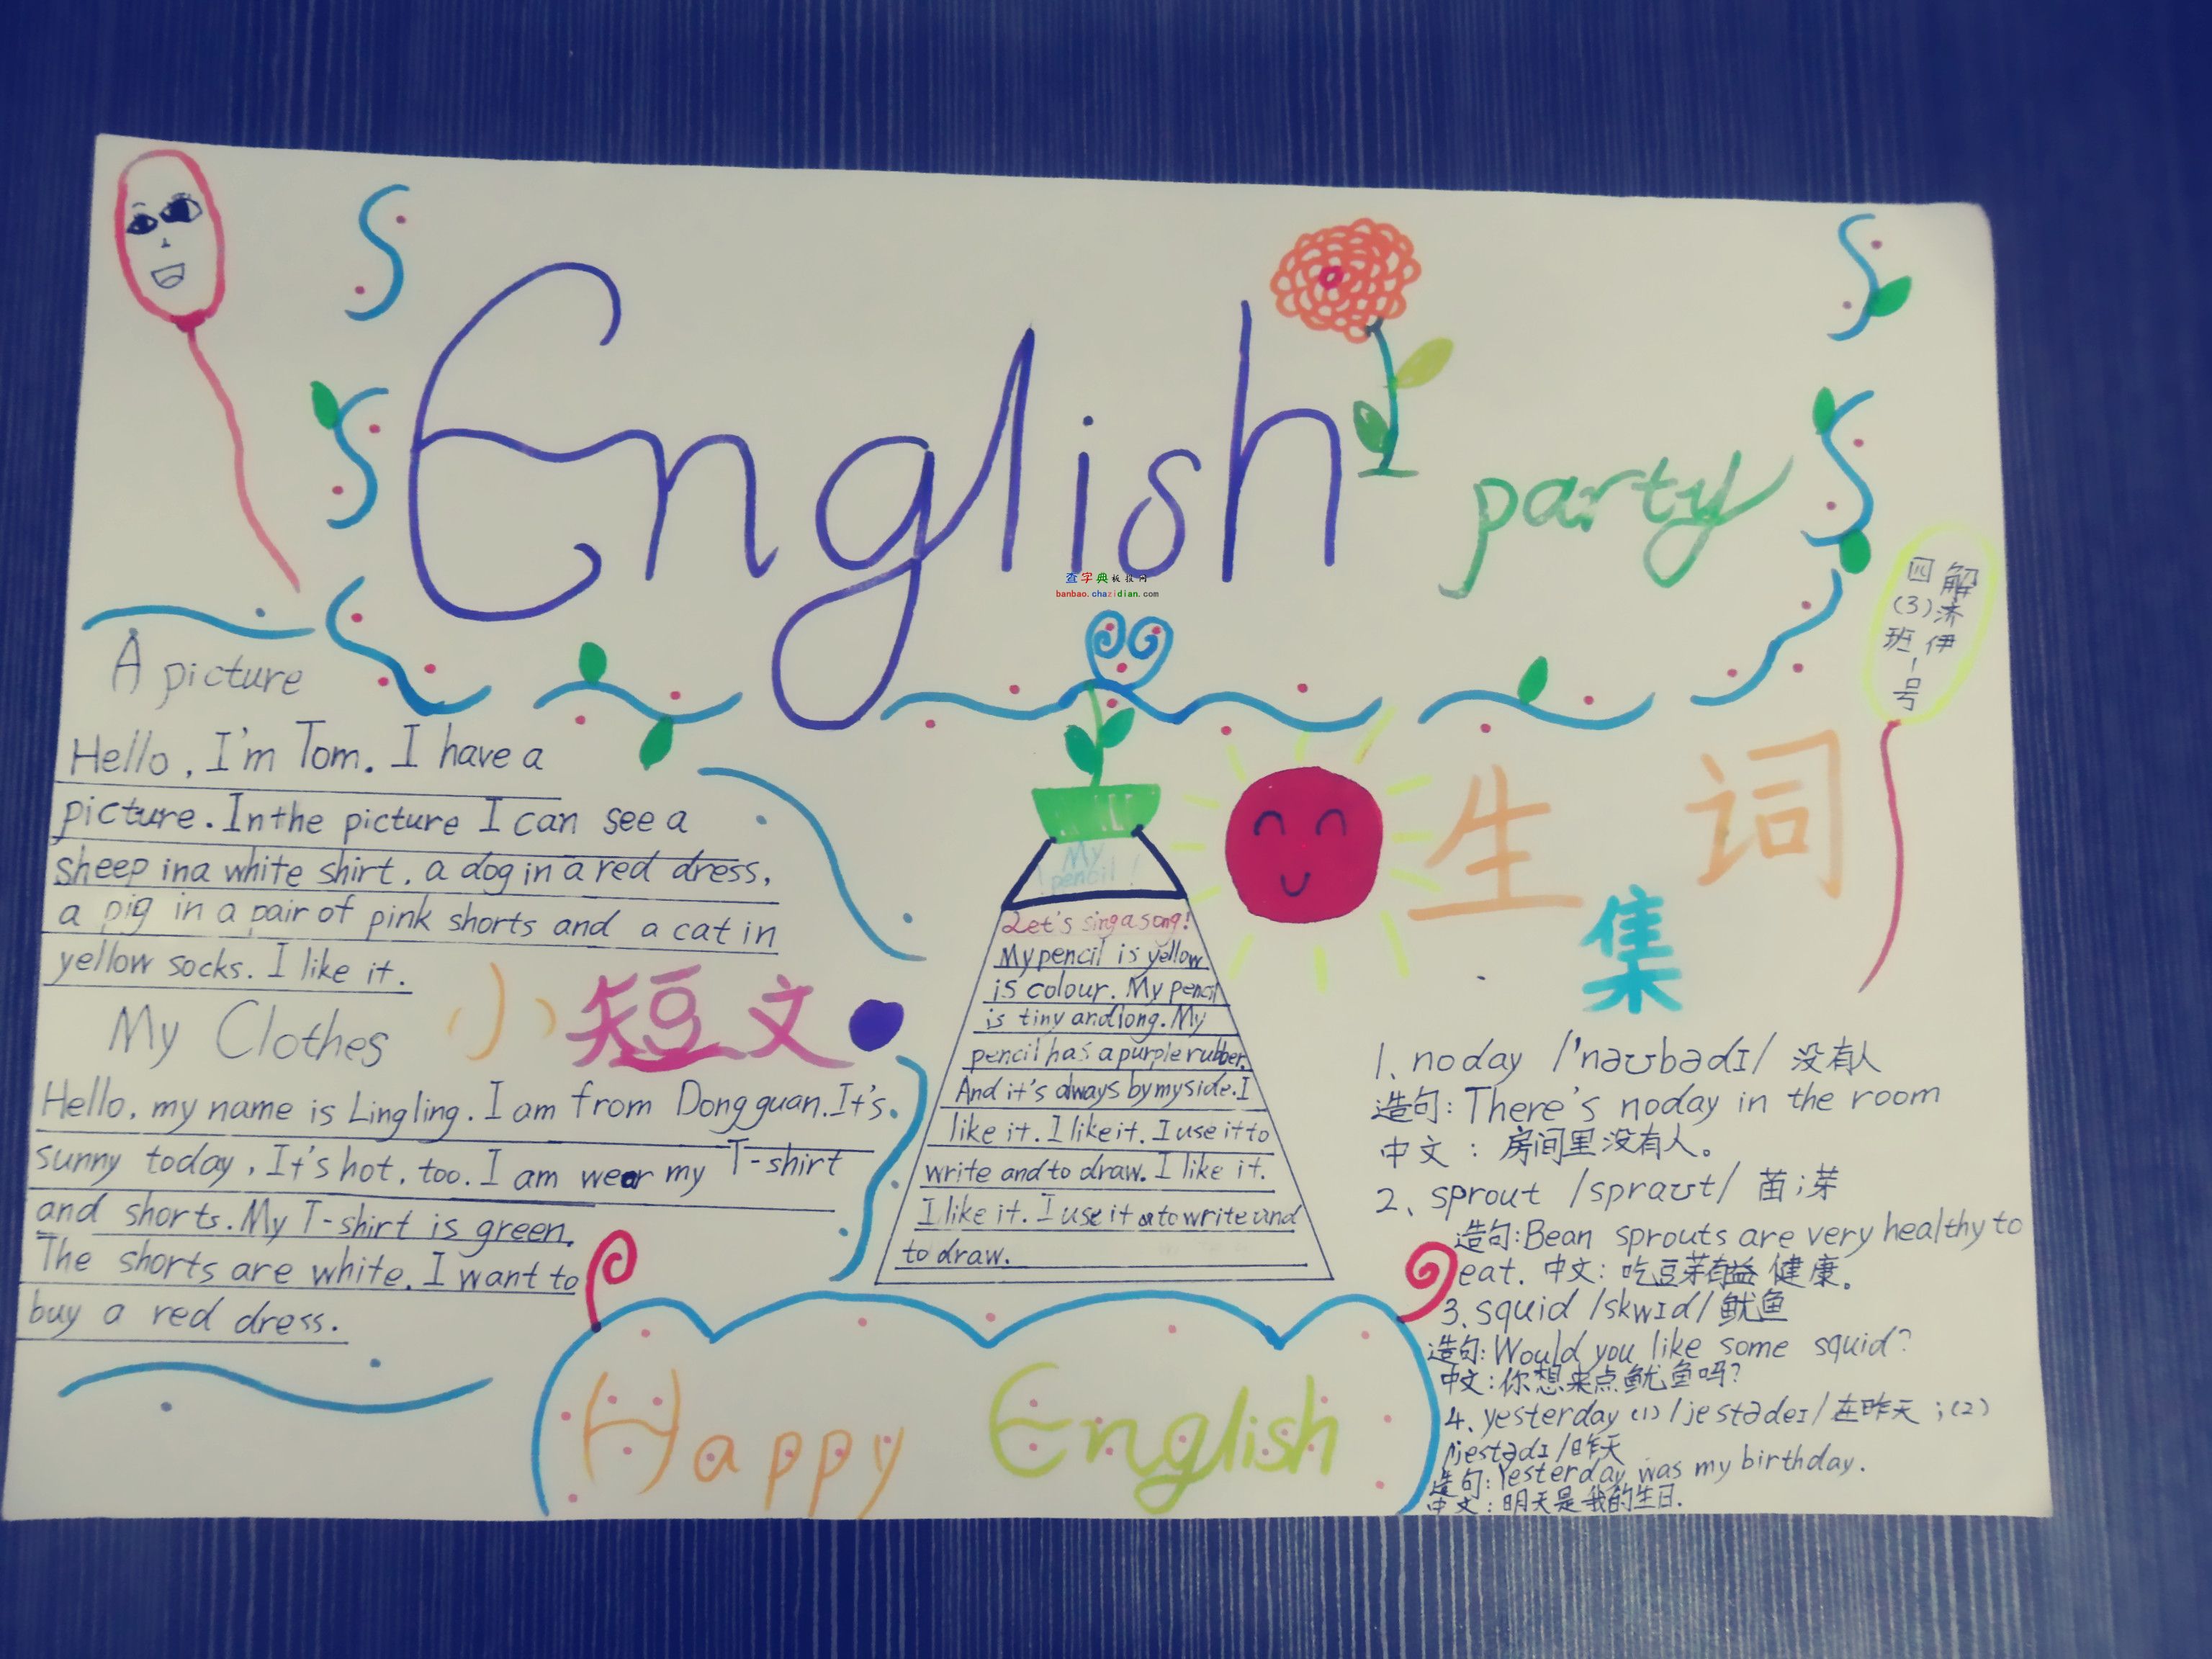 English
party
查字典板报网
banbao.chazidian.com
解济伊
四(3)班1号
A picture
Hello, I'm Tom. I have a
picture. In the picture I can see a
sheep in a white shirt, a dog in a red dress,
a pig in a pair of pink shorts and a cat in
yellow socks. I like it.
小短文
My Clothes
Hello, my name is Lingling. I am from Dongguan. It's
sunny today, It's hot, too. I am wear my T-shirt
and shorts. My T-shirt is green.
The shorts are white. I want to
buy a red dress.
My
pencil!
Let's sing a song!
My pencil is yellow
is colour. My pencil
is tiny and long. My
pencil has a purple rubber.
And it's always by my side. I
like it. I like it. I use it to
write and to draw. I like it.
I like it. I use it to write and
to draw.
生词
集
1、noday /'nəʊbədɪ/ 没有人
造句: There's noday in the room
中文: 房间里没有人。
2、sprout /spraʊt/ 苗;芽
造句: Bean sprouts are very healthy to
eat. 中文: 吃豆芽有益健康。
3、squid /skwɪd/ 鱿鱼
造句: Would you like some squid?
中文: 你想来点鱿鱼吗?
4、yesterday (1) /jestədeɪ/ 在昨天; (2)
/jestədɪ/ 昨天
造句: Yesterday was my birthday.
中文: 明天是我的生日.
Happy English